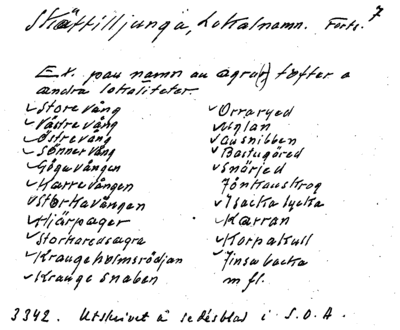 7
Skättilljunga, Lokalnamn. Forts.
Ex. pau namn au ägor(?) täfter o
andra lokaliteter.
Store vång
Västre vång
Östre vång
Sönner vång
Gögavången
Harrevången
Storkavången
Hjärpager
Storkaredsagra
Krangeholmsrödjan
Krange snaben
Orraryed
Uglan
Ausnibben
Bastugöred
Snörjed
Jönkauskrog
Isacka lycka
Kärran
Korpakull
Jinsabacka
m fl.
3342. Utskrivet å sedesblad i S.O.A.